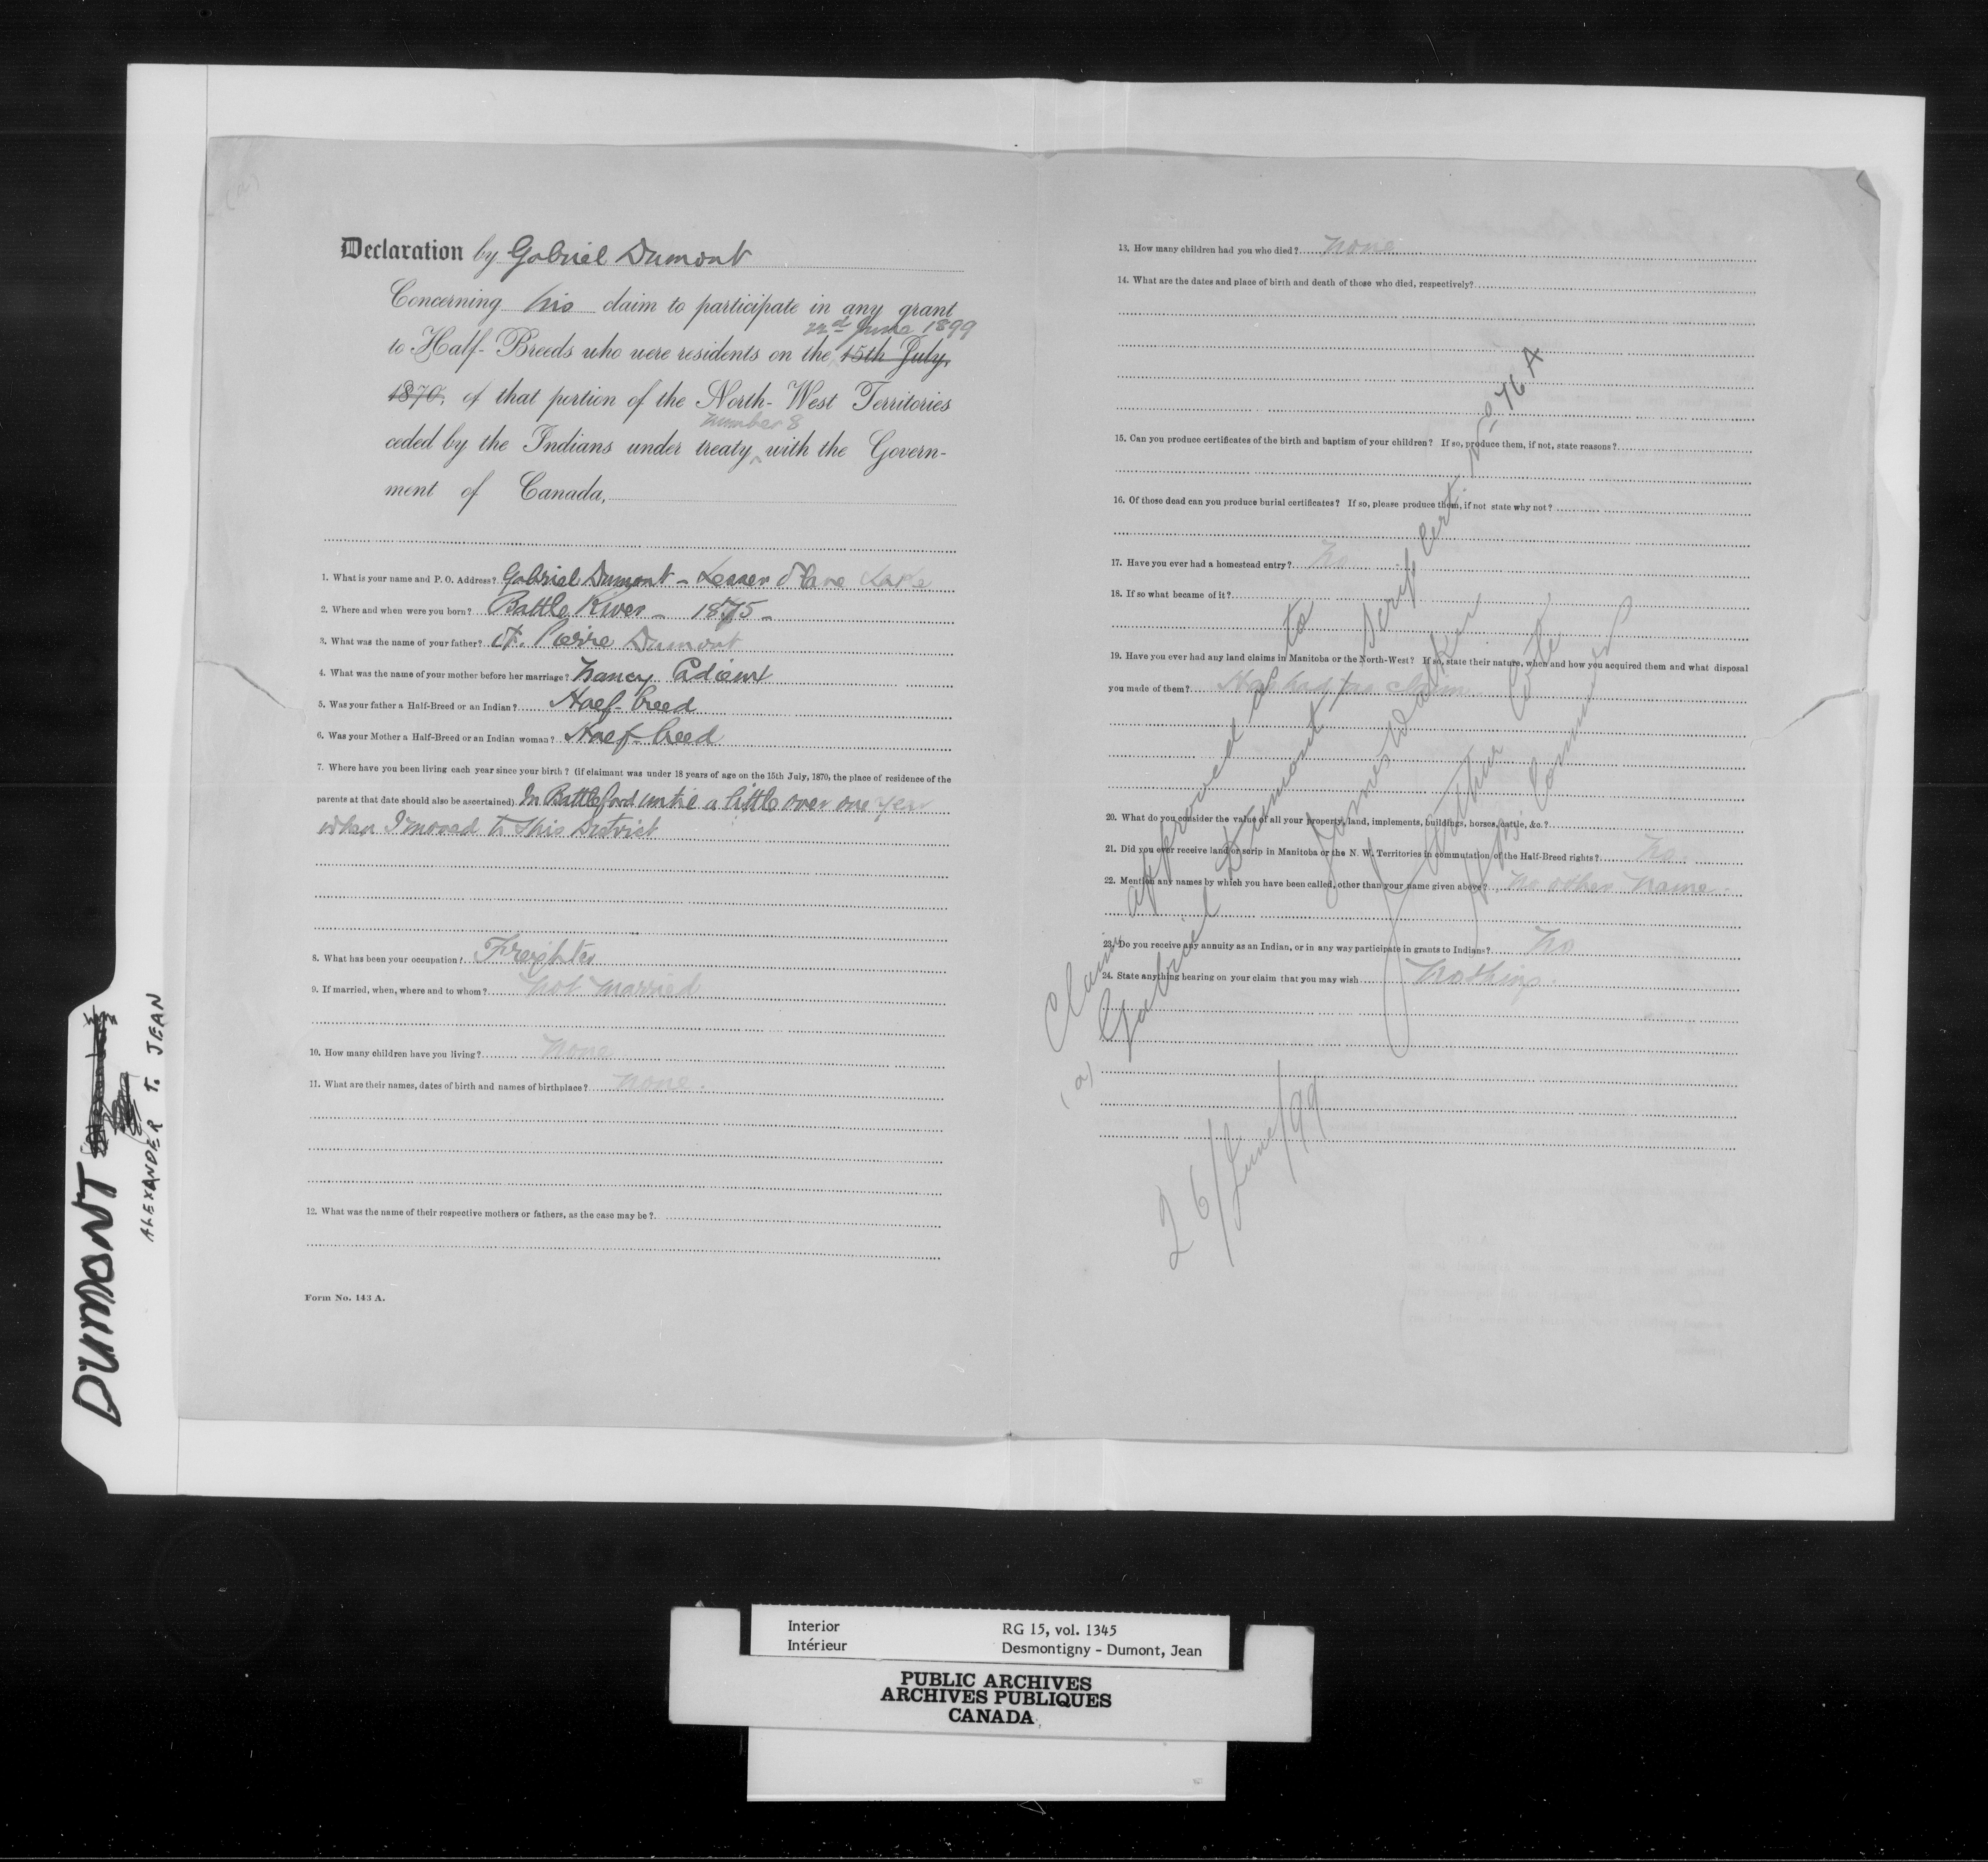 Declaration by Gabriel Dumont
Concerning his claim to participate in any grant
22nd June 1899
to Half-Breeds who were residents on the 15th July,
1870, of that portion of the North-West Territories
number 8
ceded by the Indians under treaty with the Govern-
ment of Canada,
1. What is your name and P. O. Address? Gabriel Dumont - Lesser Slave Lake
2. Where and when were you born? Battle River - 1875 -
3. What was the name of your father? St. Pierre Dumont
4. What was the name of your mother before her marriage? Nancy
5. Was your father a Half-Breed or an Indian? Half-breed
6. Was your Mother a Half-Breed or an Indian woman? Half-breed
7. Where have you been living each year since your birth? (if claimant was under 18 years of age on the 15th July, 1870, the place of residence of the
parents at that date should also be ascertained). In Battleford until a little over one year
when I moved to this District
8. What has been your occupation? Freighter
9. If married, when, where and to whom? Not married
10. How many children have you living? None
11. What are their names, dates of birth and names of birthplace? None.
12. What was the name of their respective mothers or fathers, as the case may be?
Form No. 143 A.
13. How many children had you who died? None
14. What are the dates and place of birth and death of those who died, respectively?
15. Can you produce certificates of the birth and baptism of your children? If so, produce them, if not, state reasons?
16. Of those dead can you produce burial certificates? If so, please produce them, if not state why not?
17. Have you ever had a homestead entry? No
18. If so what became of it?
19. Have you ever had any land claims in Manitoba or the North-West? If so, state their nature, when and how you acquired them and what disposal
you made of them? Has had no claim
20. What do you consider the value of all your property, land, implements, buildings, horses, cattle, &c.?
21. Did you ever receive land or scrip in Manitoba or the N. W. Territories in commutation of the Half-Breed rights? No.
22. Mention any names by which you have been called, other than your name given above? No other name.
23. Do you receive any annuity as an Indian, or in any way participate in grants to Indians? No
24. State anything bearing on your claim that you may wish Nothing.
Claim approved as to
(a) Gabriel Dumont / Scrip Cert. No. 76 A
James Walker
J. Arthur Coté
Commissioners
26/June/99
DUMONT
ALEXANDER T. JEAN
Interior RG 15, vol. 1345
Intérieur Desmontigny - Dumont, Jean
PUBLIC ARCHIVES
ARCHIVES PUBLIQUES
CANADA